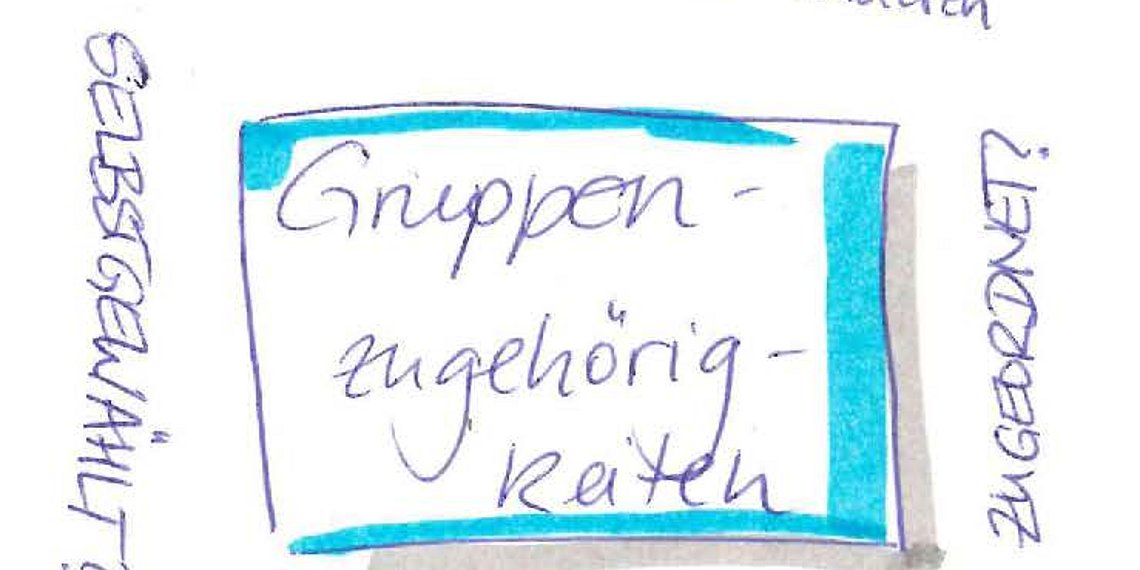 SELBSTGEWÄHLT?
Gruppen-
zugehörig-
keiten
ZUGEORDNET?